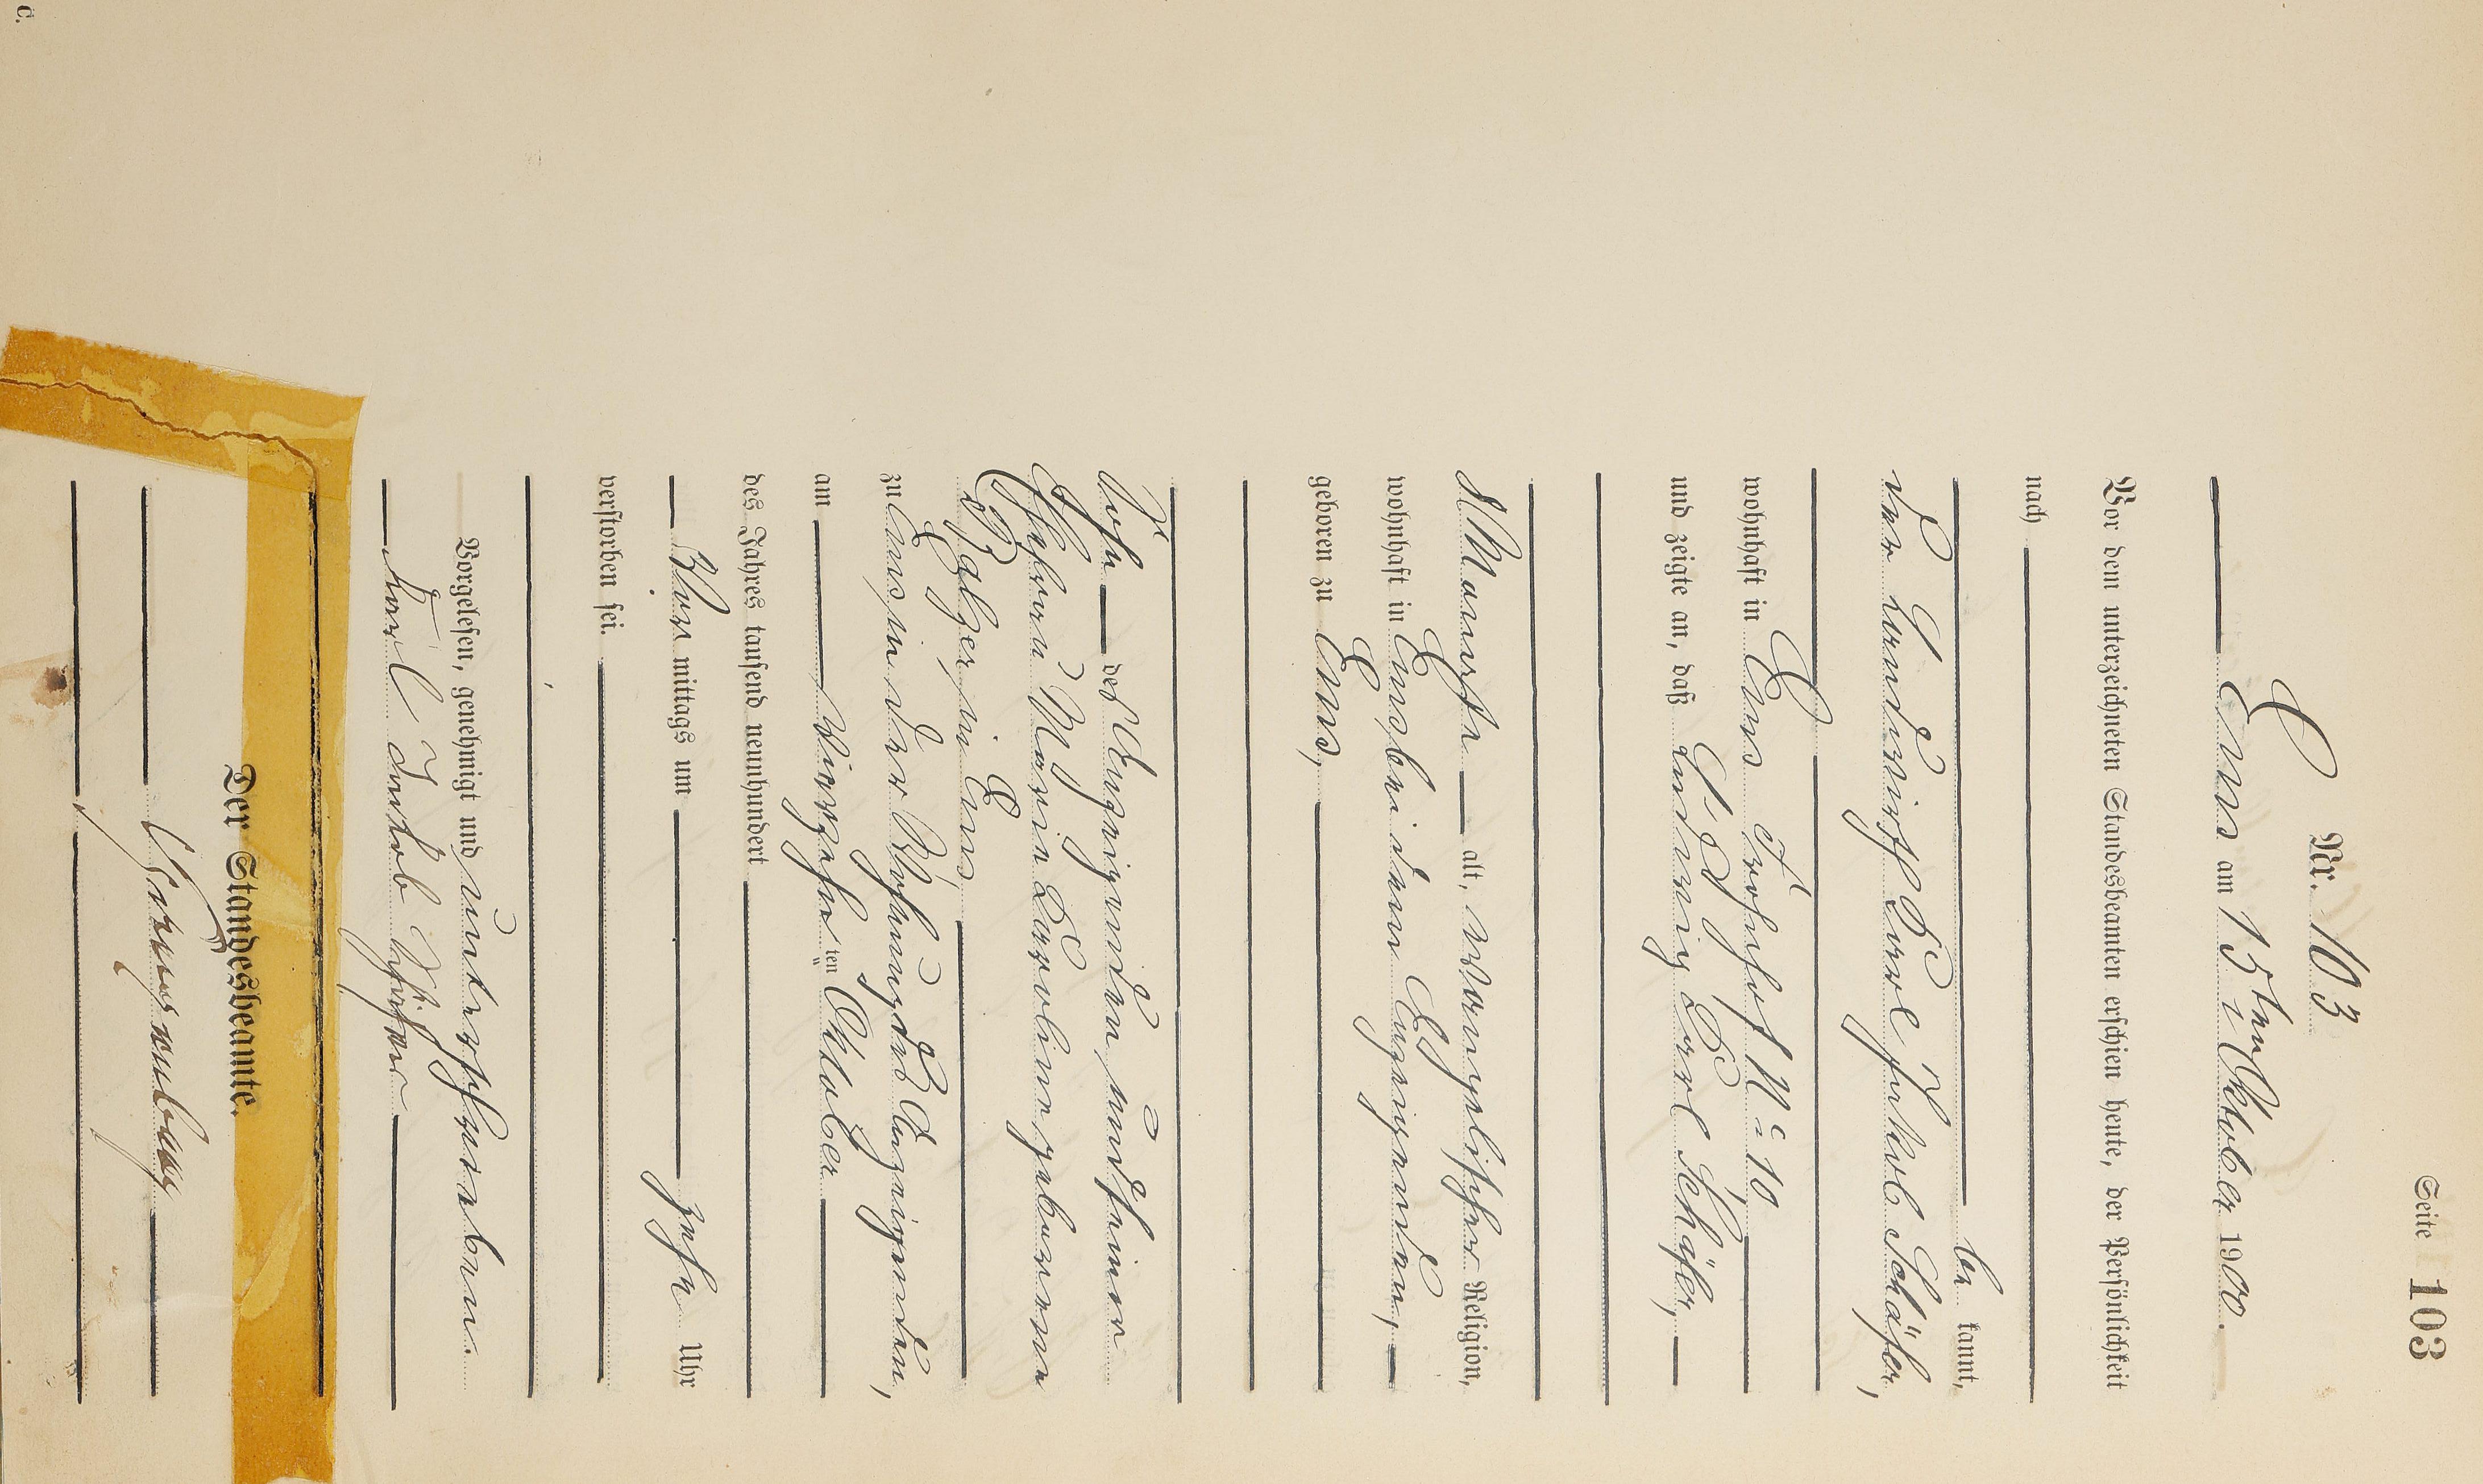 Seite 103
Nr. 103
Ems am 15ten Oktober 1900.
Vor dem unterzeichneten Standesbeamten erschien heute, der Persönlichkeit
nach
be kannt,
der Landwirth Carl Jakob Schäfer,
wohnhaft in Ems Frohnhof No 10
und zeigte an, daß Ludwig Carl Schäfer,
8 Monate alt, evangelischer Religion,
wohnhaft in Ems, bei dem Anzeigenden,
geboren zu Ems,
Sohn des Anzeigenden, und seiner
Ehefrau Marie Caroline geborenen
Balzer, in Ems
zu Ems, in der Wohnung des Anzeigenden,
am vierzehn ten Oktober
des Jahres tausend neunhundert
Vor mittags um zehn Uhr
verstorben sei.
Vorgelesen, genehmigt und unterschrieben.
Karl Jakob Schäfer
Der Standesbeamte.
C.